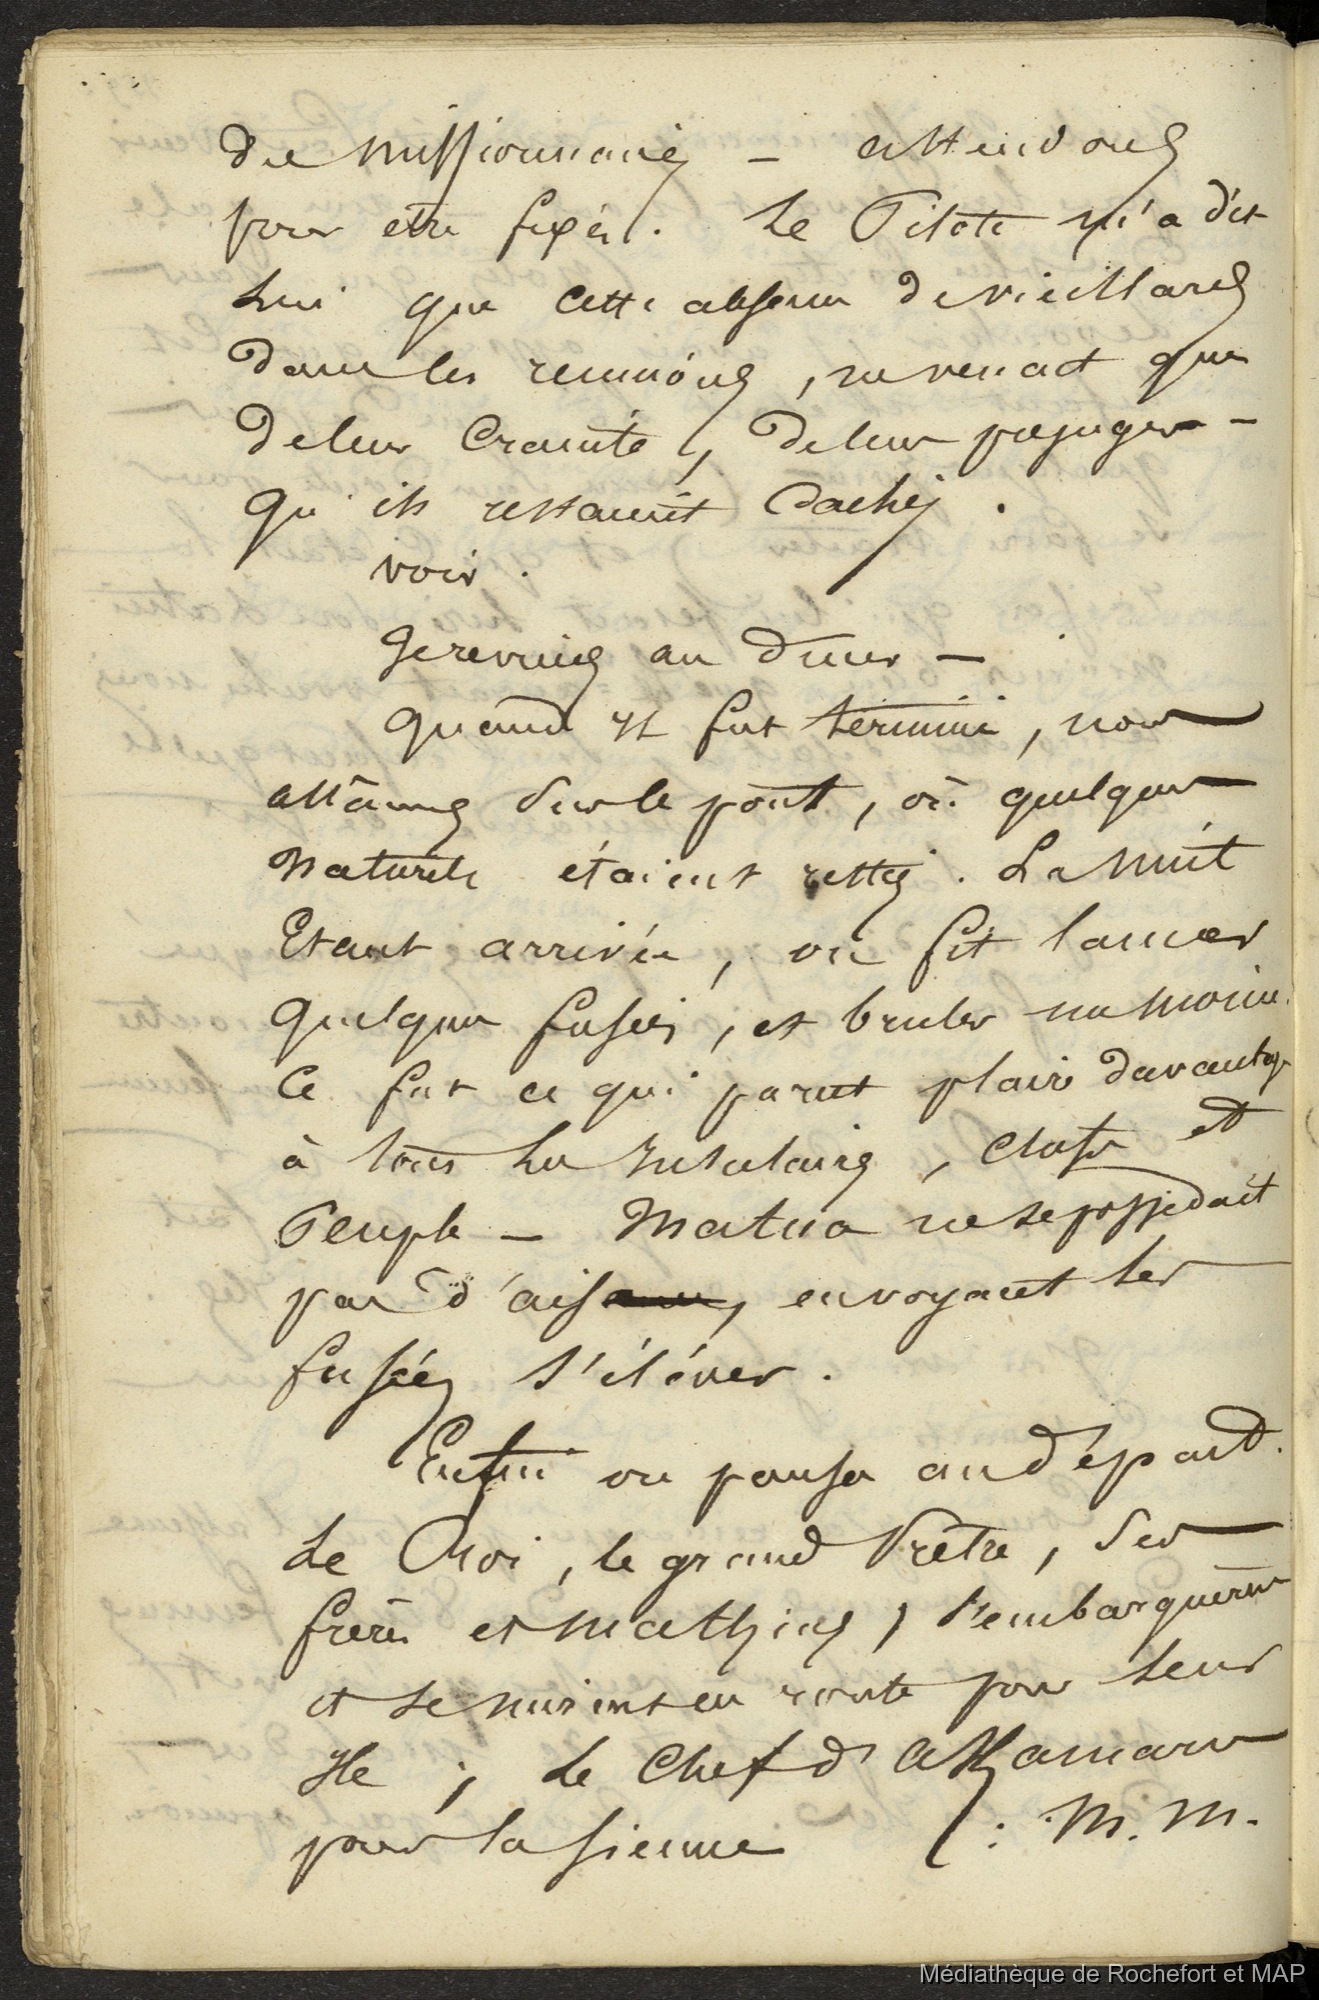 des missionnaires – attendons
pour etre fixés. Le Pilote m'a dit
lui que cette absence de vieillards
dans les reunions, ne venait que
de leur crainte, de leur préjugés –
qu'ils restaient cachés.
voir.
Je reviens au diner –
quand il fut terminé, nous
allâmes sur le pont, où quelques
naturels étaient restés. La nuit
etant arrivée, on fit lancer
quelques fusées, et bruler un moine.
Ce fut ce qui parut plaire davantage
à tous les insulaires, chefs et
Peuple – Matua ne se possédait
pas d'aise, en voyant les
fusées s'éléver.
Enfin on pensa au départ.
Le Roi, le grand Prêtre, ses
frères et Mathias, s'embarquèrent
et se mirent en route pour leur
Ile ; le chef d'
pour la sienne : M. M.
Médiathèque de Rochefort et MAP